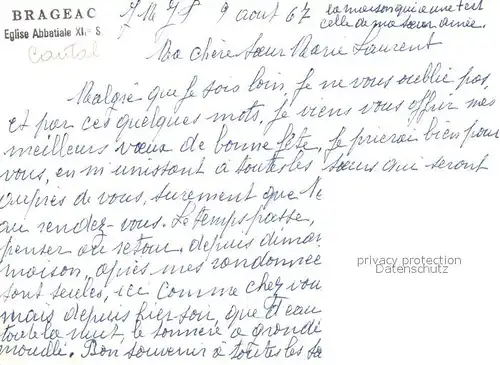 BRAGEAC
Eglise Abbatiale XIe S
Cantal
JMJF 9 aout 67
la maison qui a une + est
celle de ma sœur aînée.
Ma chère Sœur Marie Laurent
Malgré que je sois loin, je ne vous oublie pas,
et par ces quelques mots, je viens vous offrir mes
meilleurs vœux de bonne fête. Je prierai bien pour
vous, en m'unissant à toutes les sœurs qui seront
auprès de vous, surement que le
au rendez-vous. Le temps passe,
penser au retour. depuis diman
maison, après mes randonnée
sont seules, ici comme chez vou
mais depuis hier soir, que d'eau
toute la nuit, le tonnerre a grondé
mouillé. Bon souvenir à toutes les sœ
privacy protection
Datenschutz